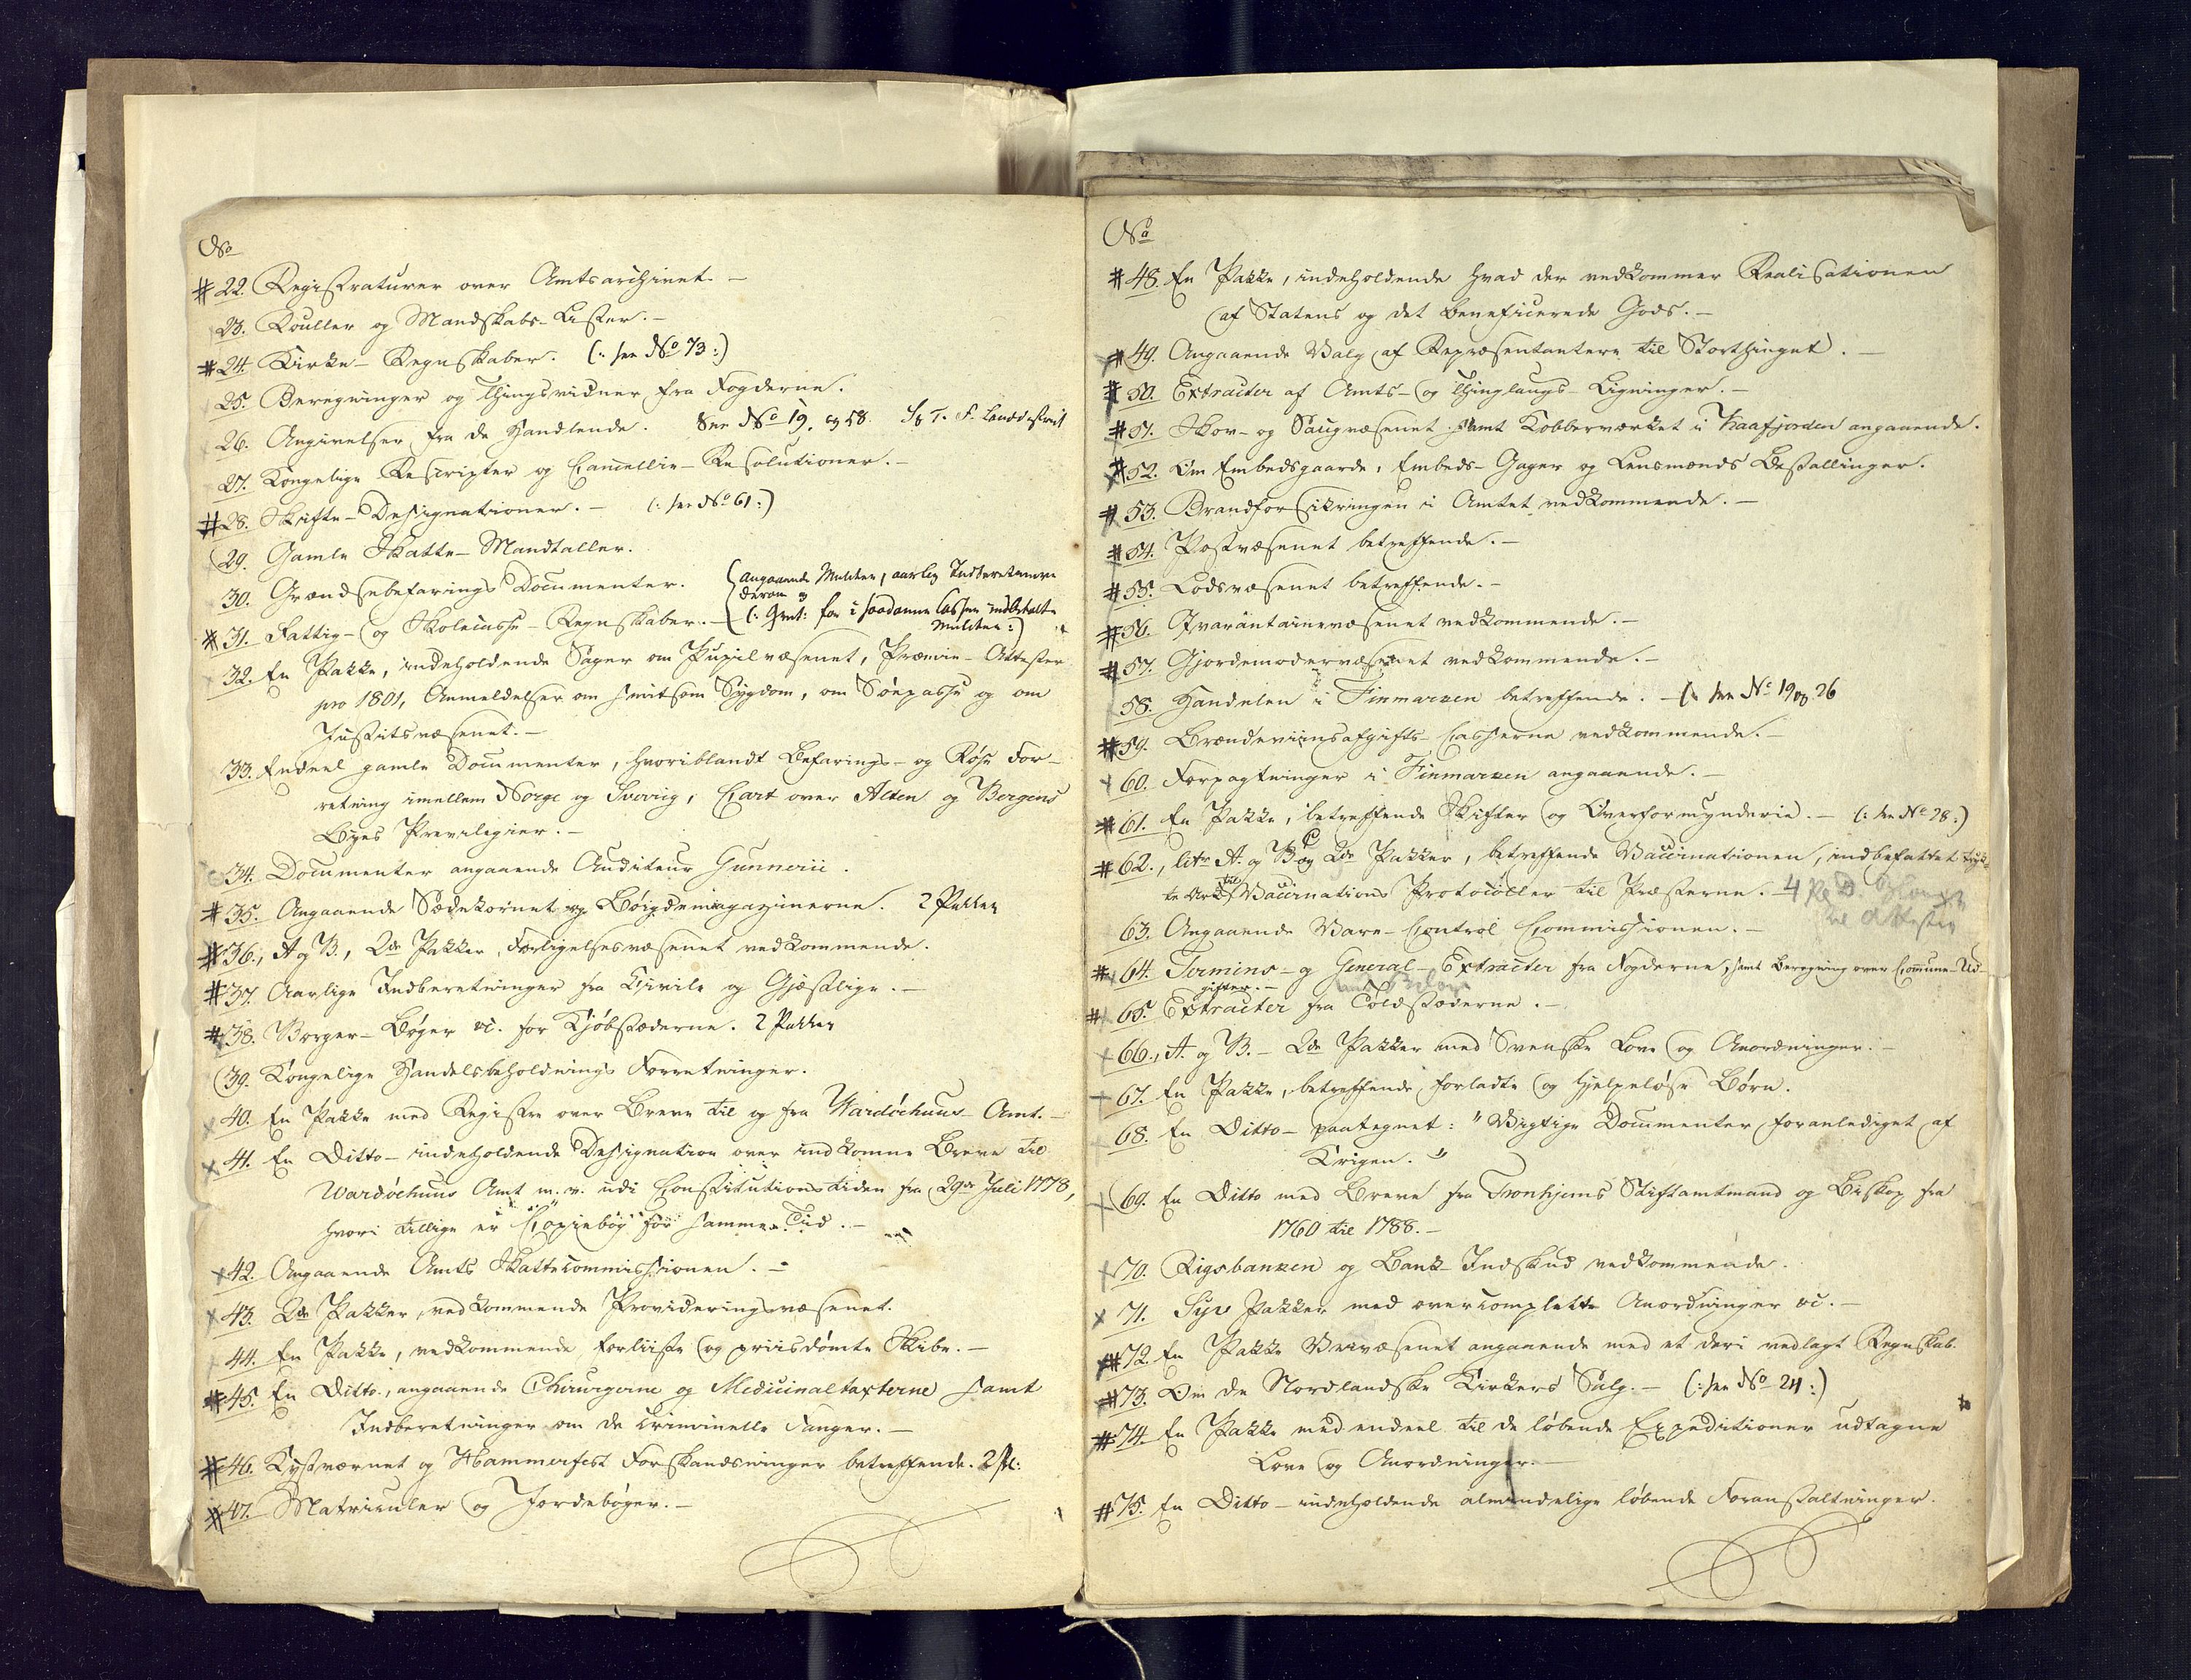 No
# 22. Registraturer over Amtsarchivet. –
23. Rouller og Mandskabs-Lister. –
# 24. Kirke-Regnskaber. (: see No 73 :)
25. Beregninger og Thingsvidner fra Fogderne.
26. Angivelser fra de Handlende. See No 19. og 58.
27. Kongelige Rescripter og Cancellie-Resolutioner. –
# 28. Skifte-Designationer. – (: see No 61 :)
29. Gamle Skatte-Mandtaller.
30. Grændsebefarings Documenter.
angaaende Mulcter, aarlig Indberetninger
derom og
# 31. Fattig- og Skolecasse-Regnskaber. – (: for i saadanne Casser indbetalte
Mulcter :)
32. En Pakke, indeholdende Sager om Pupilvæsenet, Præmie-Attester
pro 1801, Anmeldelser om smitsom Sygdom, om Söepasse og om
Justitsvæsenet. –
33. Endeel gamle Documenter, hvoriblandt Befarings- og Röse For-
retning imellem Norge og Sverrig, Cart over Alten og Bergens
Byes Previlegier. –
34. Documenter angaaende Auditeur Gunnerii.
# 35. Angaaende Sædekornet og Böigdemagazinerne. 2 Pakker
# 36., A og B., 2de Pakker, Forligelsesvæsenet vedkommende.
# 37. Aarlige Indberetninger fra Civile og Gjæstlige. –
# 38. Borger-Bøger etc. for Kjøbstæderne. 2 Pakker
39. Kongelige Handelsbeholdnings Forretninger.
x 40. En Pakke med Registre over Breve til og fra Wardöehuus-Amt. –
x 41. En Ditto – indeholdende Designation over indkomne Breve til
Wardöehuus Amt m. v. udi Constitutionstiden fra 29de Juli 1778,
hvori tillige er Copiebog for samme Tid. –
x 42. Angaaende Amts Skattecommissionen. –
x 43. 2de Pakker, vedkommende Provideringsvæsenet.
44. En Pakke, vedkommende forliiste og priisdömte Skibe. –
# 45. En Ditto., angaaende Chirurgerne og Medicinaltaxterne samt
Indberetninger om de criminelle Fanger. –
# 46. Kystværnet og Hammerfest Forskandsninger betreffende. 2 Pk:
# 47. Matriculer og Jordebøger. –
No
# 48. En Pakke, indeholdende hvad der vedkommer Realisationen
af Statens og det beneficerede Gods. –
# 49. Angaaende Valg af Repræsentantere til Storthinget. –
# 50. Extracter af Amts- og Thinglaugs-Ligninger. –
# 51. Skov- og Saugvæsenet samt Kobberværket i Kaafjorden angaaende.
# 52. Om Embedsgaarde, Embeds-Gager og Lensmænds Bestallinger.
# 53. Brandforsikringen i Amtet vedkommende. –
# 54. Postvæsenet betreffende. –
# 55. Lodsvæsenet betreffende. –
# 56. Qvarantainevæsenet vedkommende. –
# 57. Gjordemodervæsenet vedkommende. –
58. Handelen i Finmarken betreffende. – (: see No 19 og 26
# 59. Brændeviinsafgifts-Casserne vedkommende. –
x 60. Forpagtninger i Finmarken angaaende. –
# 61. En Pakke, betreffende Skifter og Overformynderie. – (: see No 28 :)
# 62., litr A. og B og C 2de Pakker, betreffende Vaccinationen, indbefattet tryk-
te Ark til Vaccinations Protocoller til Præsterne. –
63. Angaaende Vare-Control Commissionen. –
# 64. Termins- og General-Extracter fra Fogderne, samt Beregning over Commune-Ud-
gifter. –
# 65. Extracter fra Toldstæderne. –
x 66., A. og B. – 2de Pakker med Svenske Love og Anordninger. –
67. En Pakke, betreffende forladte og hjelpeløse Börn.
68. En Ditto – paategnet: "Vigtige Documenter foranlediget af
Krigen."
69. En Ditto med Breve fra Tronhjems Stiftamtmand og Biskop fra
1760 til 1788. –
x 70. Rigsbanken og Bank-Indskud vedkommende.
x 71. Syv Pakker med overcomplette Anordninger etc. –
# 72. En Pakke Veivæsenet angaaende med et deri vedlagt Regnskab.
# 73. Om de Nordlandske Kirkers Salg. – (: see No 24 :)
# 74. En Pakke med endeel til de løbende Expeditioner udtagne
Love og Anordninger. –
# 75. En Ditto – indeholdende almindelige løbende Foranstaltninger.